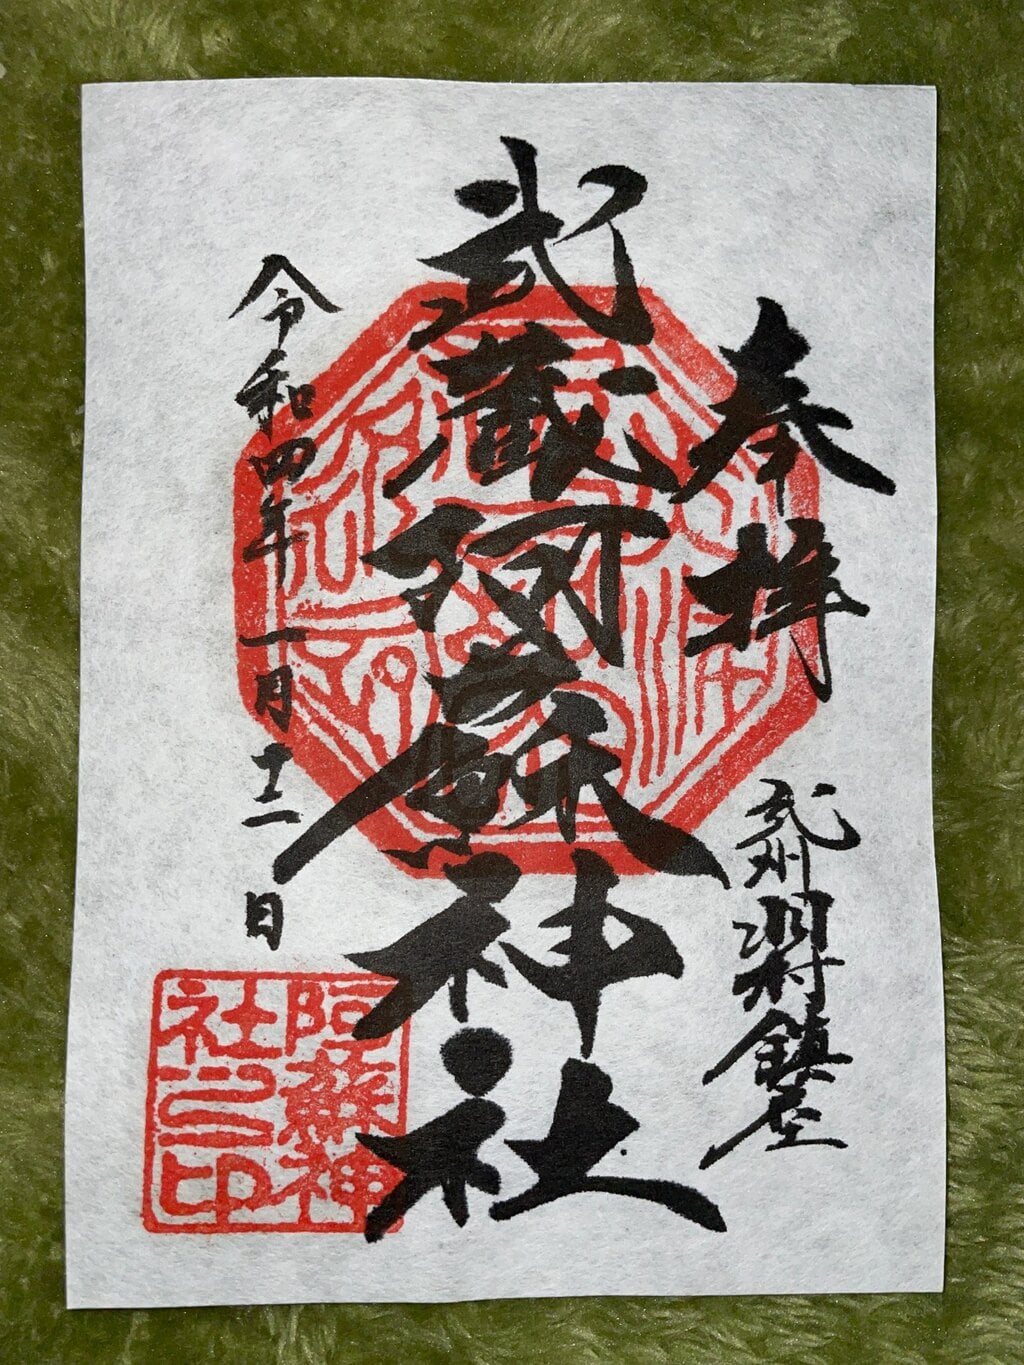 奉拝
武州羽村鎮座
武蔵阿蘇神社
令和四年一月十二日
阿蘇神
社之印